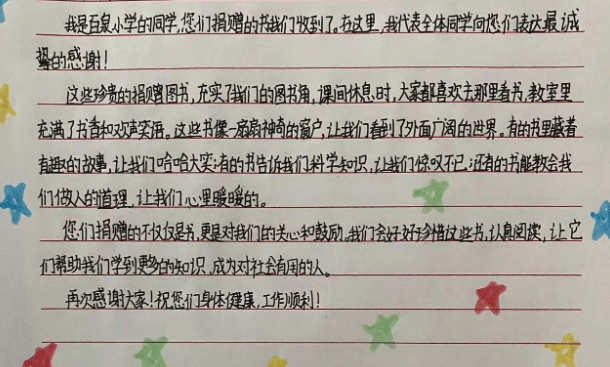 我是百泉小学的同学,您们捐赠的书我们收到了。在这里,我代表全体同学向您们表达最诚
挚的感谢!
这些珍贵的捐赠图书,充实了我们的图书角,课间休息时,大家都喜欢去那里看书,教室里
充满了书香和欢声笑语。这些书像一扇扇神奇的窗户,让我们看到了外面广阔的世界。有的书里藏着
有趣的故事,让我们哈哈大笑;有的书告诉我们科学知识,让我们惊叹不已;还有的书能教会我
们做人的道理,让我们心里暖暖的。
您们捐赠的不仅仅是书,更是对我们的关心和鼓励。我们会好好珍惜这些书,认真阅读,让它
们帮助我们学到更多的知识,成为对社会有用的人。
再次感谢大家!祝您们身体健康,工作顺利!